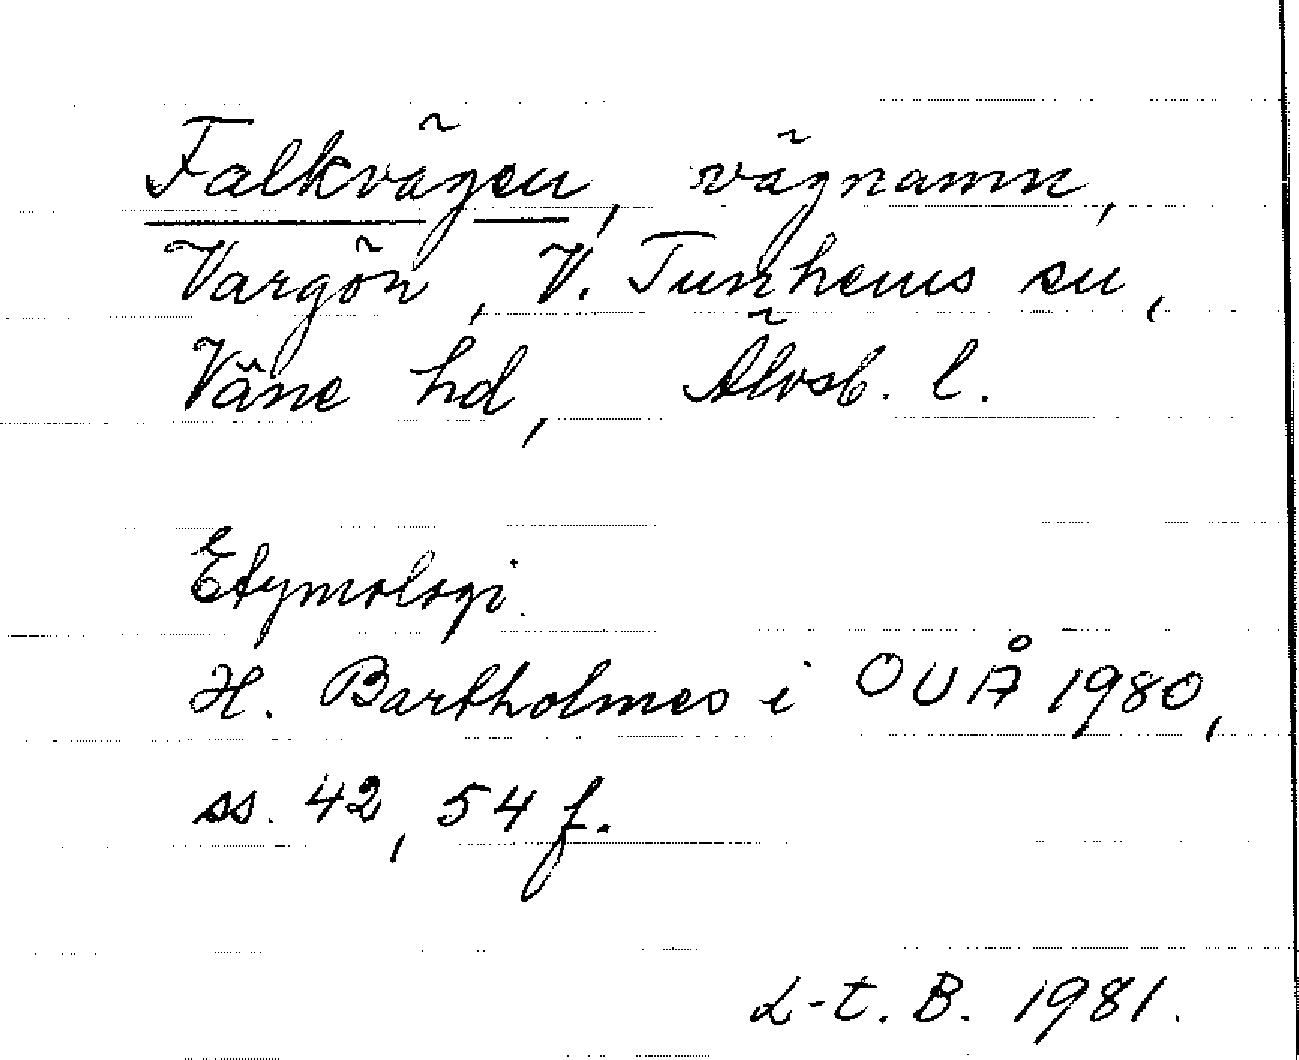 Falkvägen, vägnamn,
Vargön, V. Tunhems sn,
Väne hd, Älvsb. l.
Etymologi.
H. Bartholmes i OUÅ 1980,
ss. 42, 54 f.
L-t. B. 1981.